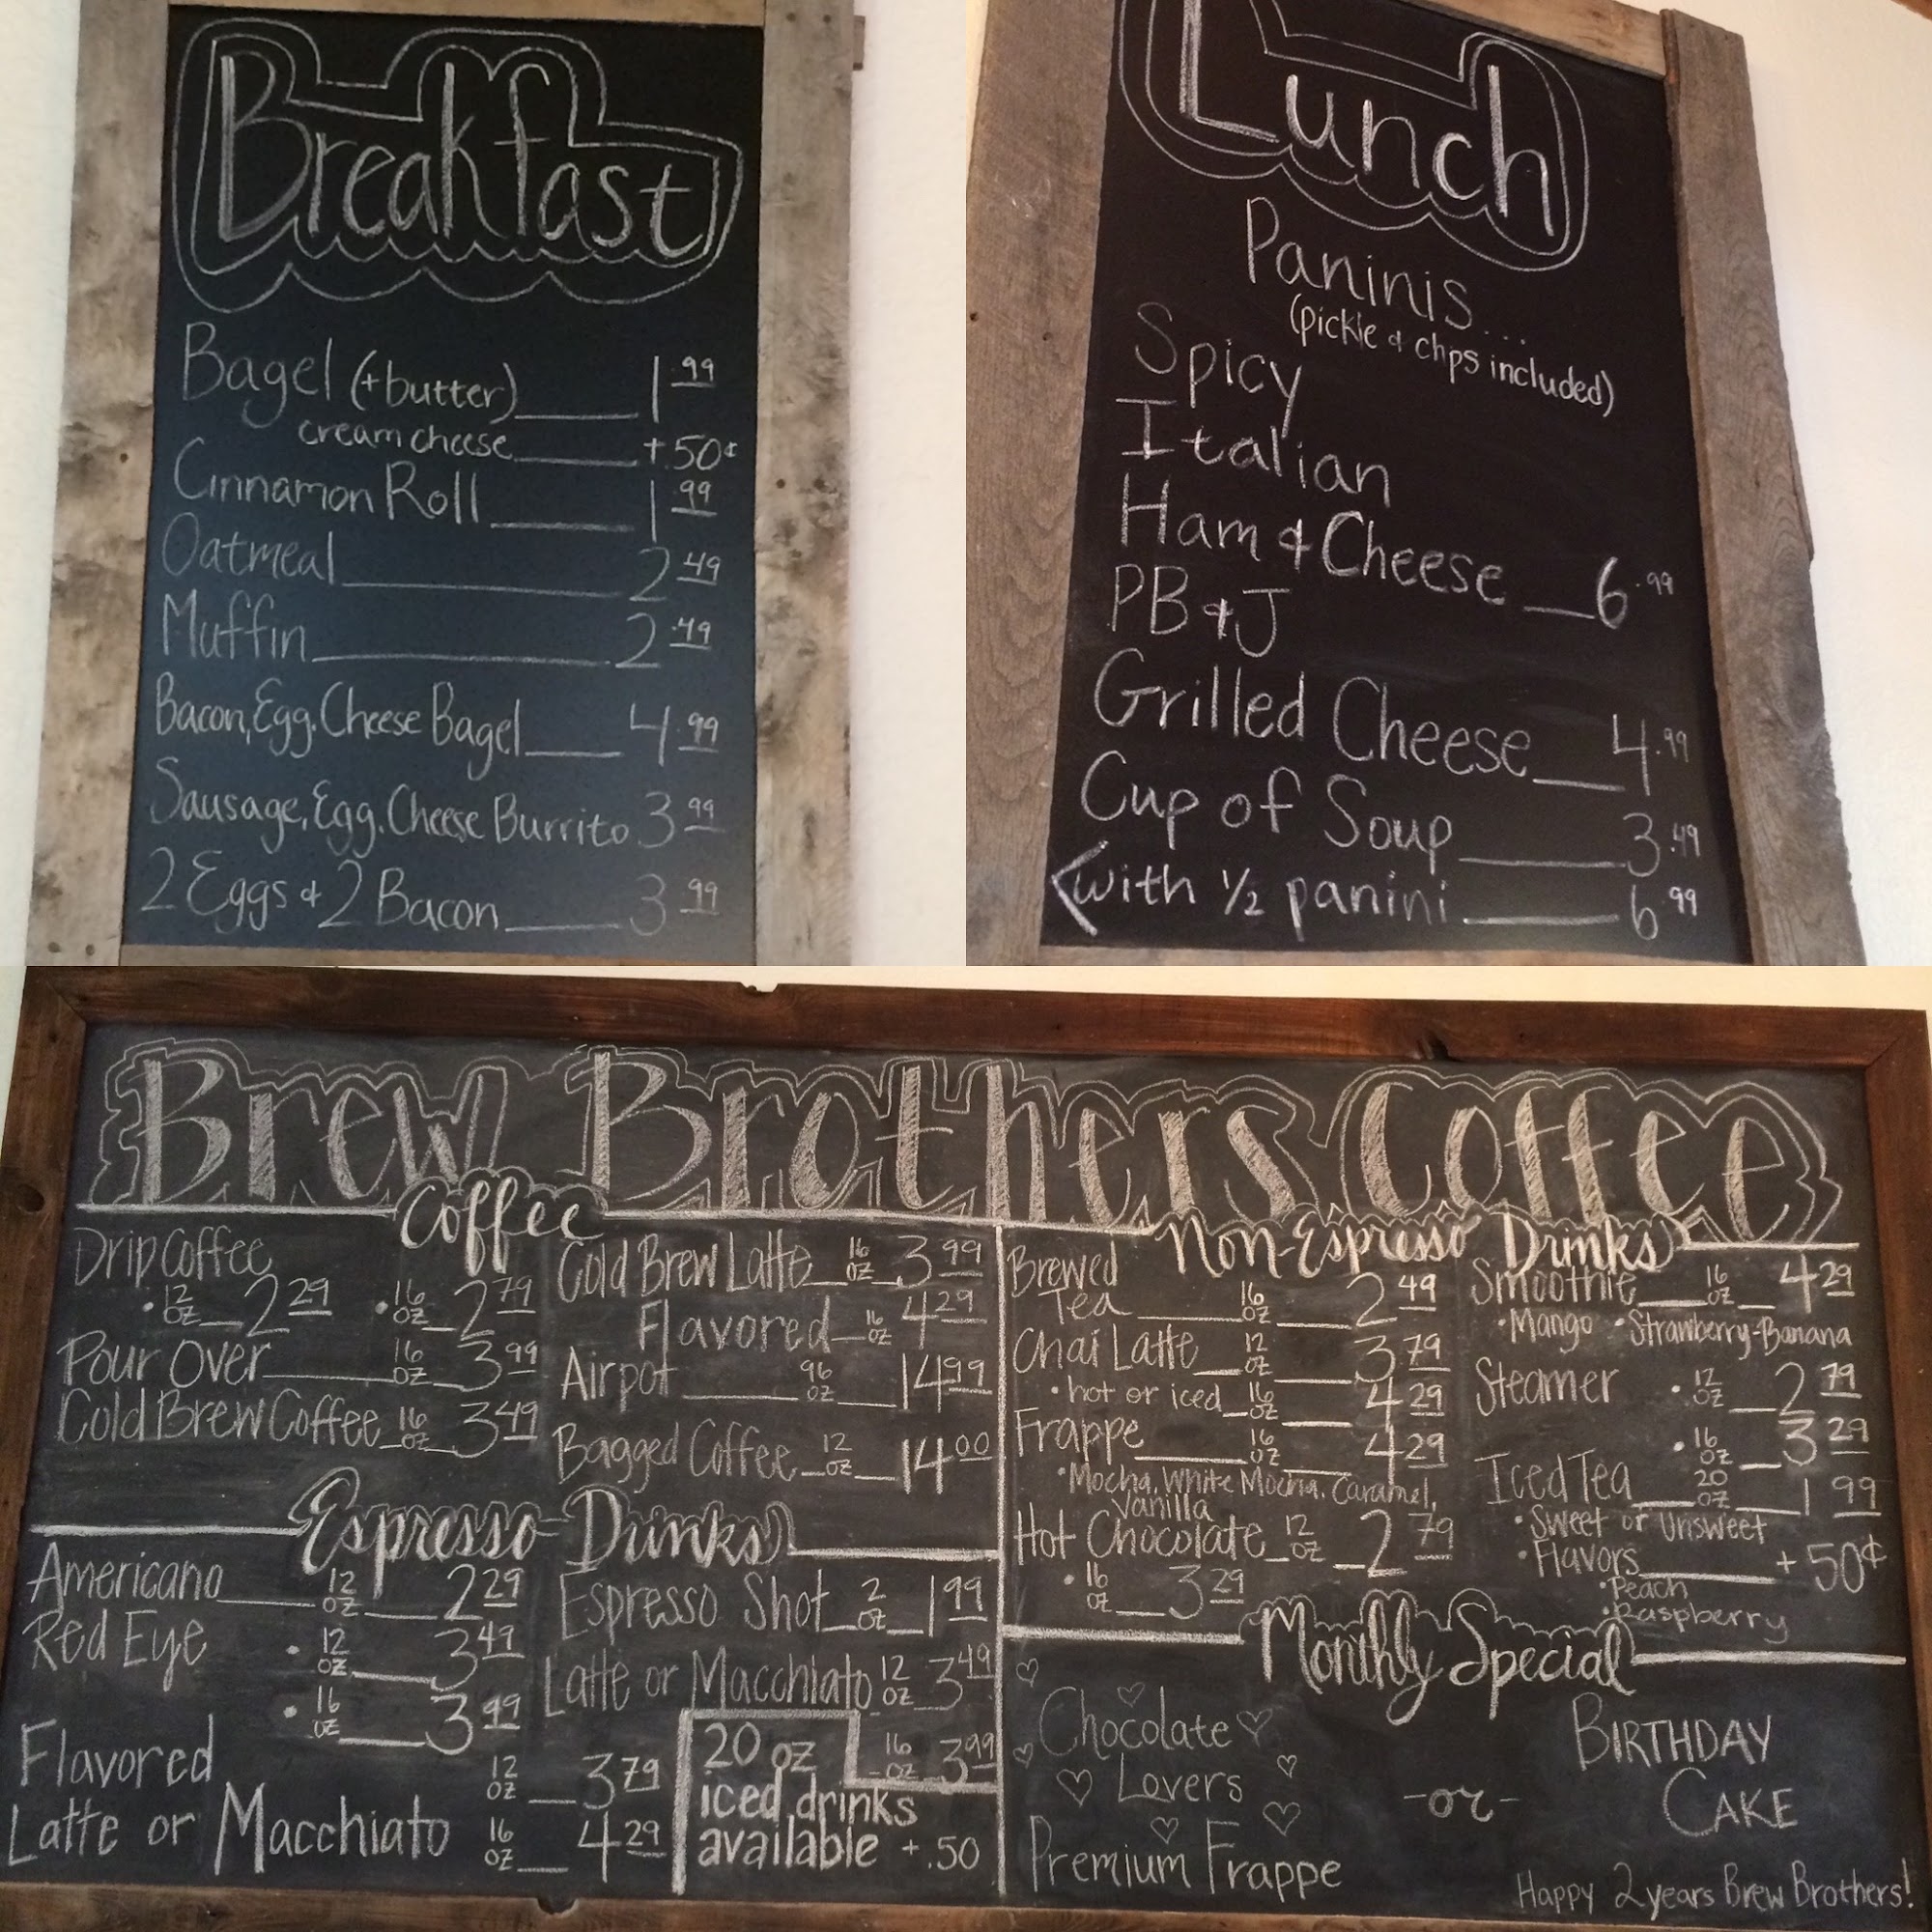 Breakfast
Bagel (+butter) 1.99
cream cheese +.50¢
Cinnamon Roll 1.99
Oatmeal 2.49
Muffin 2.49
Bacon, Egg, Cheese Bagel 4.99
Sausage, Egg, Cheese Burrito 3.99
2 Eggs & 2 Bacon 3.99
Lunch
Paninis...
(pickle & chips included)
Spicy
Italian
Ham & Cheese 6.99
PB & J
Grilled Cheese 4.99
Cup of Soup 3.49
<with 1/2 panini 6.99
Brew Brothers Coffee
Coffee
Drip Coffee
• 12 oz 2 29 • 16 oz 2 79
Pour Over 16 oz 3 99
Cold Brew Coffee 16 oz 3 49
Cold Brew Latte 16 oz 3 99
Flavored 16 oz 4 29
Airpot 96 oz 14 99
Bagged Coffee 12 oz 14 00
Espresso Drinks
Americano 12 oz 2 29
Red Eye • 12 oz 3 49
• 16 oz 3 99
Flavored
Latte or Macchiato
12 oz 3 79
16 oz 4 29
Espresso Shot 2 oz 1 99
Latte or Macchiato 12 oz 3 49
16 oz 3 99
20 oz
iced drinks
available +.50
Non-Espresso Drinks
Brewed
Tea 16 oz 2 49
Chai Latte 12 oz 3 79
• hot or iced 16 oz 4 29
Frappe 16 oz 4 29
• Mocha, White Mocha, Caramel,
Vanilla
Hot Chocolate 12 oz 2 79
• 16 oz 3 29
Smoothie 16 oz 4 29
• Mango • Strawberry-Banana
Steamer • 12 oz 2 79
• 16 oz 3 29
Iced Tea 20 oz 1 99
• Sweet or Unsweet
• Flavors +50¢
• Peach
• Raspberry
Monthly Special
Chocolate
Lovers
Premium Frappe
-or-
BIRTHDAY
CAKE
Happy 2 years Brew Brothers!